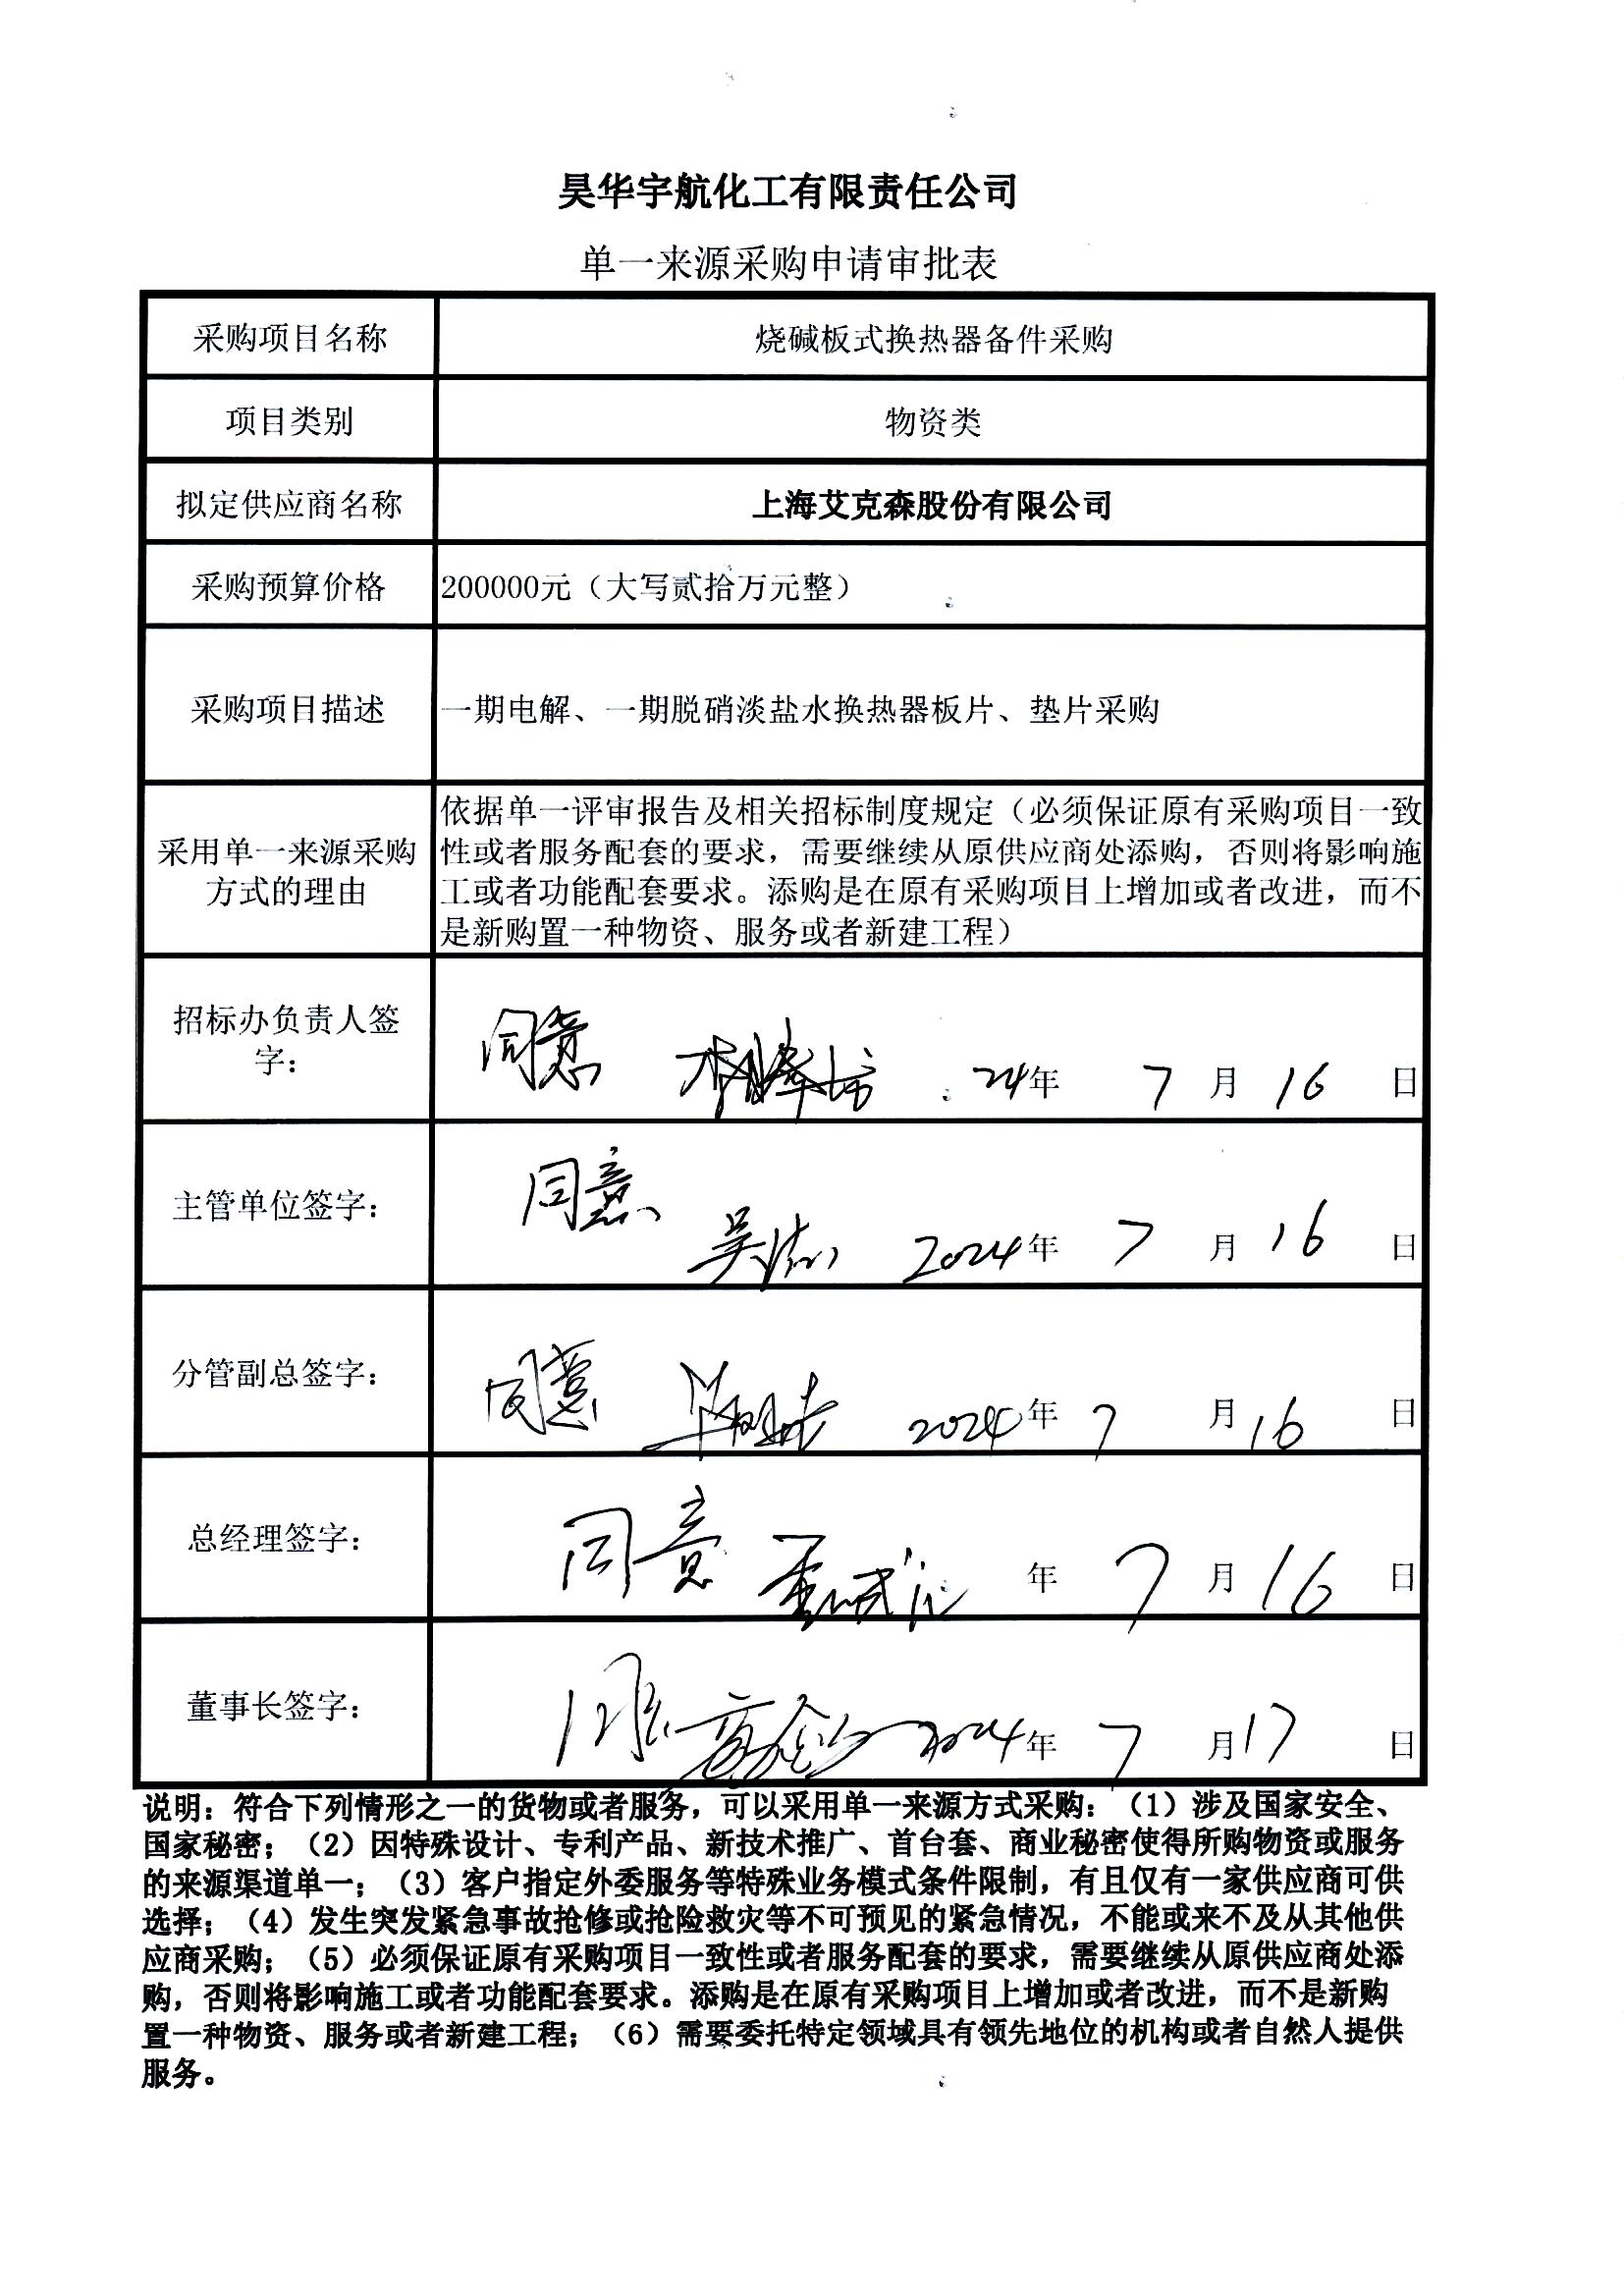 昊华宇航化工有限责任公司
单一来源采购申请审批表
采购项目名称
烧碱板式换热器备件采购
项目类别
物资类
拟定供应商名称
上海艾克森股份有限公司
采购预算价格
200000元（大写贰拾万元整）
采购项目描述
一期电解、一期脱硝淡盐水换热器板片、垫片采购
采用单一来源采购
方式的理由
依据单一评审报告及相关招标制度规定（必须保证原有采购项目一致
性或者服务配套的要求，需要继续从原供应商处添购，否则将影响施
工或者功能配套要求。添购是在原有采购项目上增加或者改进，而不
是新购置一种物资、服务或者新建工程）
招标办负责人签
字：
同意 24年 7 月 16 日
主管单位签字：
同意 2024年 7 月 16 日
分管副总签字：
同意 2024年 7 月 16 日
总经理签字：
同意 年 7 月 16 日
董事长签字：
2024年 7 月 17 日
说明：符合下列情形之一的货物或者服务，可以采用单一来源方式采购：（1）涉及国家安全、
国家秘密；（2）因特殊设计、专利产品、新技术推广、首台套、商业秘密使得所购物资或服务
的来源渠道单一；（3）客户指定外委服务等特殊业务模式条件限制，有且仅有一家供应商可供
选择；（4）发生突发紧急事故抢修或抢险救灾等不可预见的紧急情况，不能或来不及从其他供
应商采购；（5）必须保证原有采购项目一致性或者服务配套的要求，需要继续从原供应商处添
购，否则将影响施工或者功能配套要求。添购是在原有采购项目上增加或者改进，而不是新购
置一种物资、服务或者新建工程；（6）需要委托特定领域具有领先地位的机构或者自然人提供
服务。